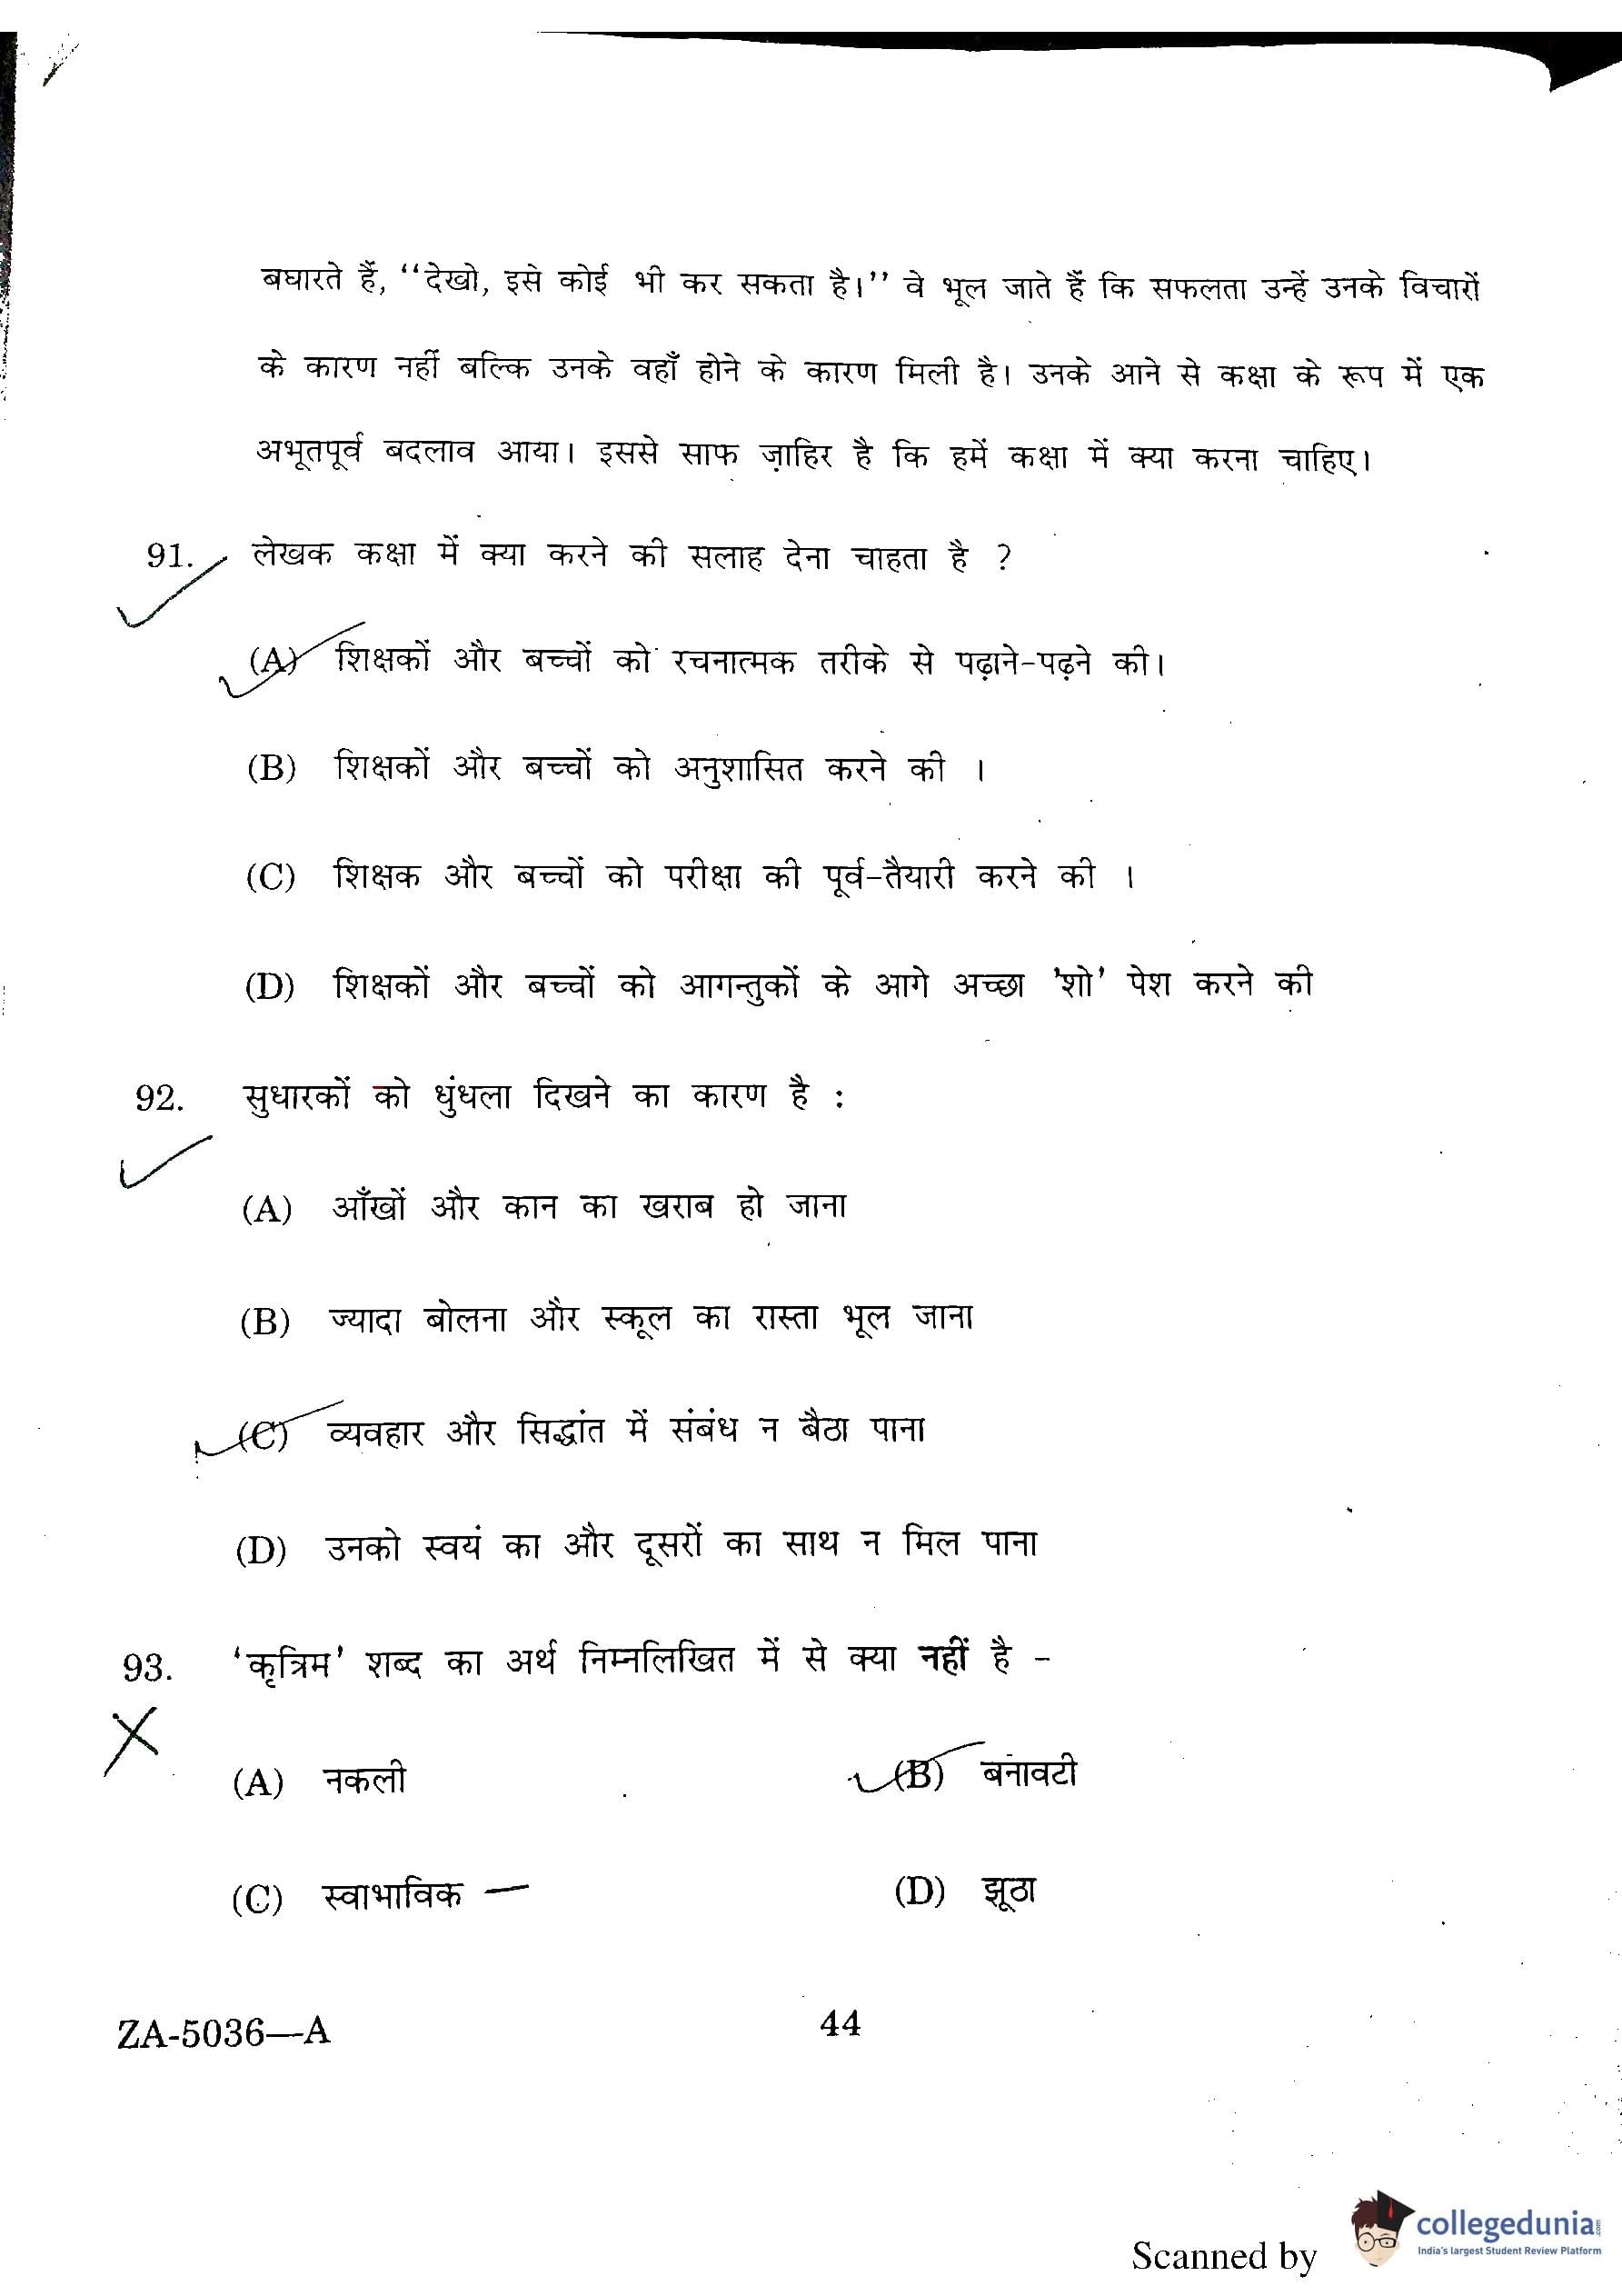 बघारते हैं, ‘‘देखो, इसे कोई भी कर सकता है।’’ वे भूल जाते हैं कि सफलता उन्हें उनके विचारों
के कारण नहीं बल्कि उनके वहाँ होने के कारण मिली है। उनके आने से कक्षा के रूप में एक
अभूतपूर्व बदलाव आया। इससे साफ ज़ाहिर है कि हमें कक्षा में क्या करना चाहिए।
91. लेखक कक्षा में क्या करने की सलाह देना चाहता है ?
(A) शिक्षकों और बच्चों को रचनात्मक तरीके से पढ़ाने-पढ़ने की।
(B) शिक्षकों और बच्चों को अनुशासित करने की ।
(C) शिक्षक और बच्चों को परीक्षा की पूर्व-तैयारी करने की ।
(D) शिक्षकों और बच्चों को आगन्तुकों के आगे अच्छा 'शो' पेश करने की
92. सुधारकों को धुंधला दिखने का कारण है :
(A) आँखों और कान का खराब हो जाना
(B) ज्यादा बोलना और स्कूल का रास्ता भूल जाना
(C) व्यवहार और सिद्धांत में संबंध न बैठा पाना
(D) उनको स्वयं का और दूसरों का साथ न मिल पाना
93. ‘कृत्रिम’ शब्द का अर्थ निम्नलिखित में से क्या नहीं है -
(A) नकली (B) बनावटी
(C) स्वाभाविक (D) झूठा
ZA-5036—A 44
Scanned by collegedunia.com
India's largest Student Review Platform